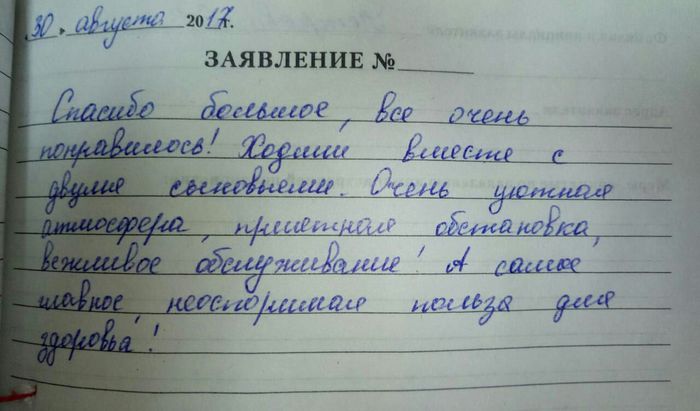 30 августа 2017г.
ЗАЯВЛЕНИЕ №
Спасибо большое, все очень
понравилось! Ходили вместе с
двумя сыновьями. Очень уютная
атмосфера, приятная обстановка,
вежливое обслуживание! А самое
главное, неоспоримая польза для
здоровья!